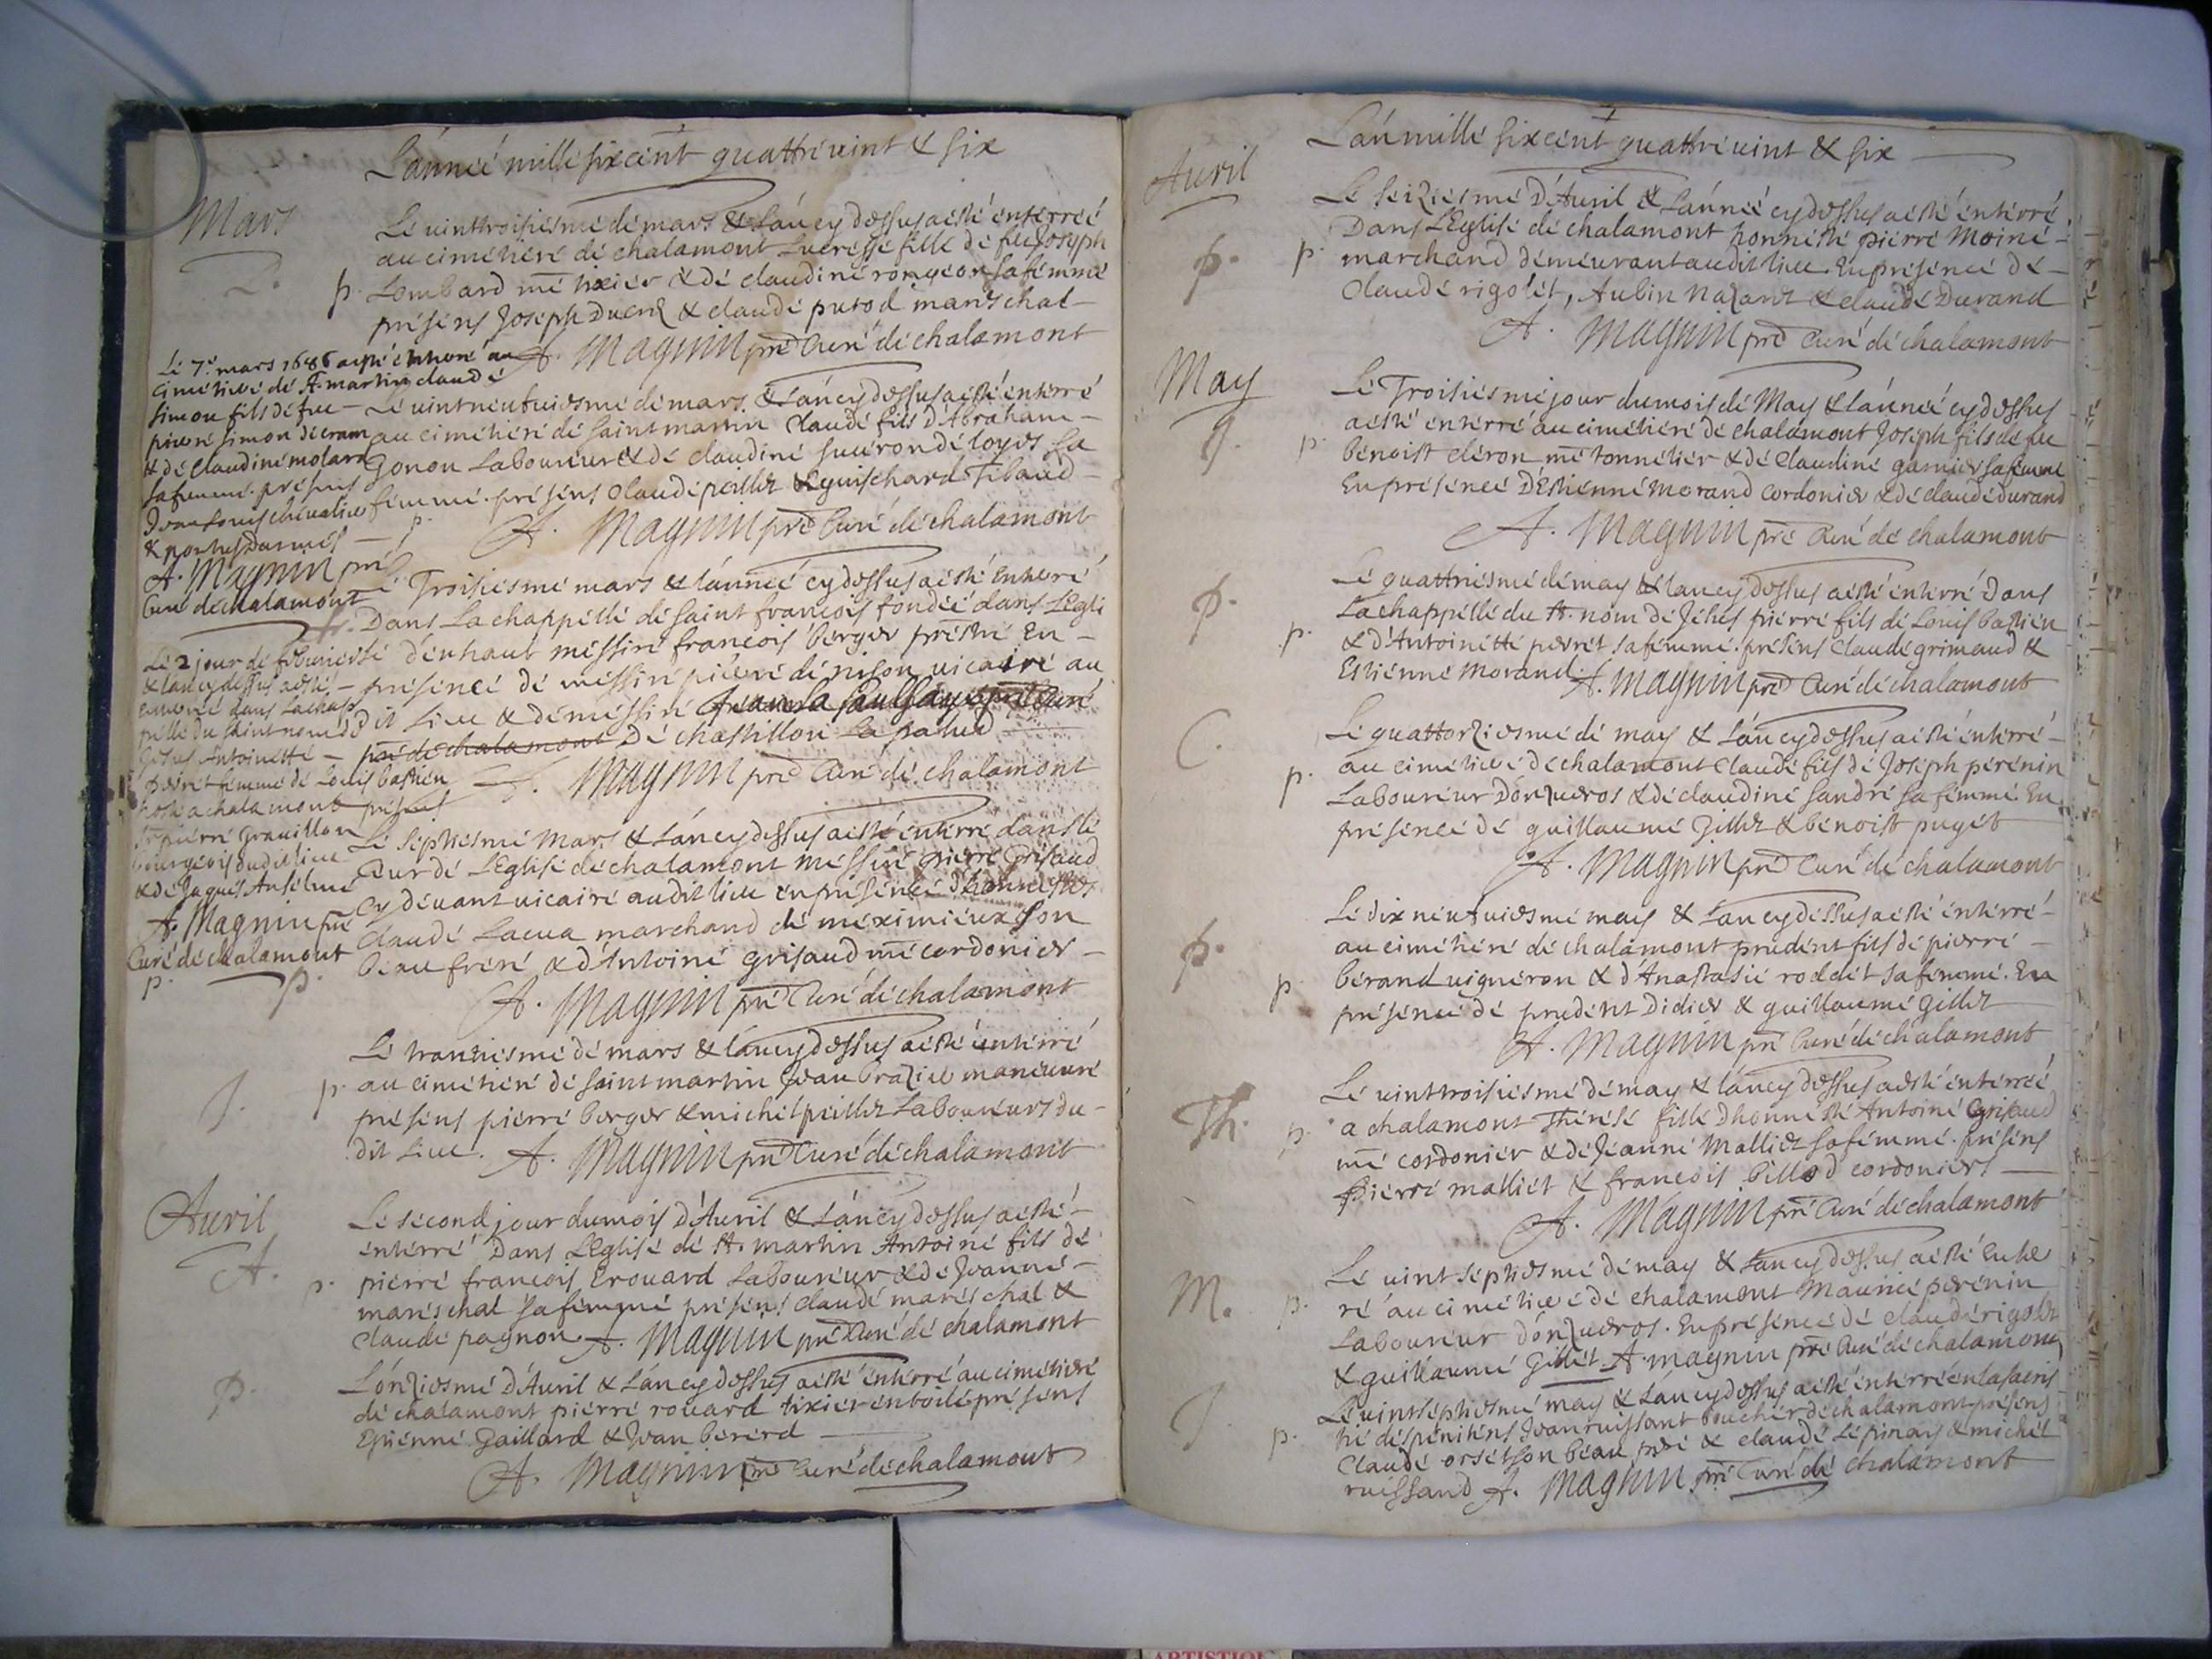 L'anneé mille sixcent quattrevint & six
Mars
Le vinttroisiesme de mars & l'an cy dessus a esté enterreé
au cimetiere de chalamont Lucresse fille de feu Joseph
L. p. Lombard me tixier & de claudine rongeon sa femme
présens Joseph & claude putod mareschal
A. Magnin pre Curé de chalamont
Le 7e mars 1686 a esté enterré au
cimetiere de St martin claude
simon fils de feu
pierre simon
& de claudine molard
sa femme. présens
Jean Louis chevalier
&
A. Magnin pre
Curé de chalamont
Le vintneufviesme de mars & l'an cy dessus a esté enterré
au cimetiere de saint martin claude fils d'Abraham
Gonon Laboureur & de claudine de loyes sa
femme. présens claude peillet & guischard Tibaud
p. A. Magnin pre Curé de chalamont
Le Troisiesme mars & l'anneé cy dessus a esté enterré
Dans La chappelle de saint francois fondeé dans L'Egli
se d'enhaut messire francois berger prestre En
présence de messire pierre de nison vicaire au
dit Lieu & de messire
pre de chalamont De chastillon la palud
A. Magnin pre Curé de chalamont
Le 2 jour de
& l'an cy dessus a esté
enterreé dans la chap
pelle du saint nom de
Jesus Antoinette
pevret femme de Louis bastien
hoste a chalamont présens
Sr pierre Grauillon
bourgeois dudit lieu
& de Jaques Anselme
A. Magnin pre
Curé de chalamont
p.
Le septiesme Mars & l'an cy dessus a esté enterré dans le
Cœur de L'Eglise de chalamont messire pierre Grisaud
cy devant vicaire audit lieu en présence d'honnestes
claude Lacua marchand de meximieux son
beau frere & d'Antoine grisaud me cordonier
p. A. Magnin pre Curé de chalamont
Le trantiesme de mars & l'an cy dessus a esté enterré
J. p. au cimetiere de saint martin Jean brazier maneuvre
présens pierre berger & michel peillet Laboureurs du
dit Lieu. A. Magnin pre Curé de chalamont
Avril
Le second jour du mois d'Avril & l'an cy dessus a esté
enterré Dans L'Eglise de St. martin Antoine fils de
A. p. pierre francois Erouard Laboureur & de Jeanne
mareschal sa femme présens claude mareschal &
claude pagnon. A. Magnin pre Curé de chalamont
L'onziesme d'Avril & l'an cy dessus a esté enterré au cimetiere
P. de chalamont pierre rouard tixier en toile présens
Estienne Gaillard & Jean bererd
A. Magnin pre Curé de chalamont
L'an mille sixcent quattrevint & six
Avril
Le seiziesme d'Avril & l'anneé cy dessus a esté enterré
Dans L'Eglise de chalamont honneste pierre Moine
P. p. marchand demeurant audit lieu. En présence de
Claude rigolet, Aubin & claude Durand
A. Magnin pre Curé de chalamont
May
Le Troisiesme jour du mois de May & l'anneé cy dessus
a esté enterré au cimetiere de chalamont Joseph fils de feu
J. p. benoist cleron me tonnelier & de claudine garnier sa femme
En présence D'Estienne Morand Cordonier & de claude durand
A. Magnin pre Curé de chalamont
Le quattriesme de may & l'an cy dessus a esté enterré Dans
P. La chappelle du St. nom de Jesus pierre fils de Louis bastien
p. & d'Antoinette pevret sa femme. présens claude grimaud &
Estienne Morand. A. Magnin pre Curé de chalamont
Le quattorziesme de may & l'an cy dessus a esté enterré
C. au cimetiere de chalamont Claude fils de Joseph perénin
p. Laboureur & de claudine sandre sa femme. En
présence de guillaume Gillet & benoist puget
A. Magnin pre Curé de chalamont
Le dix neufviesme may & l'an cy dessus a esté enterré
P. au cimetiere de chalamont prudent fils de pierre
p. berand vigneron & d'Anastasie sa femme. En
présence de prudent Didier & guillaume gillet
A. Magnin pre Curé de chalamont
Le vinttroisiesme de may & l'an cy dessus a esté enterreé
Th. p. a chalamont Thérése fille d'honneste Antoine Grisaud
me cordonier & de Jeanne Malliet sa femme. présens
Pierre malliet & francois billod cordoniers
A. Magnin pre Curé de chalamont
Le vint septiesme de may & l'an cy dessus a esté enter
M. p. ré au cimetiere de chalamont Maurice perénin
Laboureur. En présence de claude rigolet
& guillaume Gillet A. Magnin pre Curé de chalamont
Le vintseptiesme may & l'an cy dessus a esté enterré
J. p. des pénitens Jean ruissant boucher de chalamont présens
Claude orset son beau & claude & michel
ruissand A. Magnin pre Curé de chalamont